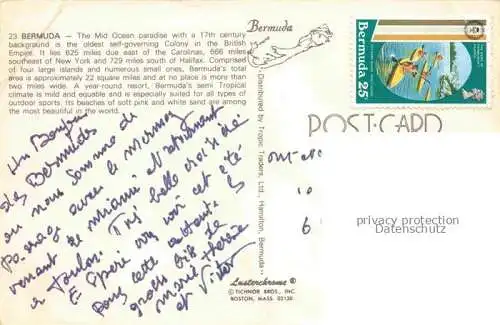 23 BERMUDA — The Mid Ocean paradise with a 17th century
background is the oldest self-governing Colony in the British
Empire. It lies 625 miles due east of the Carolinas, 666 miles
southeast of New York and 729 miles south of Halifax. Comprised
of four large islands and numerous small ones, Bermuda's total
area is approximately 22 square miles and at no place is more than
two miles wide. A year-round resort, Bermuda's semi Tropical
climate is mild and equable and is especially suited for all types of
outdoor sports, its beaches of soft pink and white sand are among
the most beautiful in the world.
Un Bonjour
des Bermudes
ou nous somme de
Passage avec le mermoz
venant de miami et retournant
a Toulon. Très belle croisière
Espere vous voir cet été
pour cette
gros bis de
marie-thérèse
et Victor
Bermuda
Distributed by Tropic Traders, Ltd., Hamilton, Bermuda
Lusterchrome ®
© TICHNOR BROS., INC.
BOSTON, MASS. 02130
Bermuda 25c
POST·CARD
10
6
privacy protection
Datenschutz